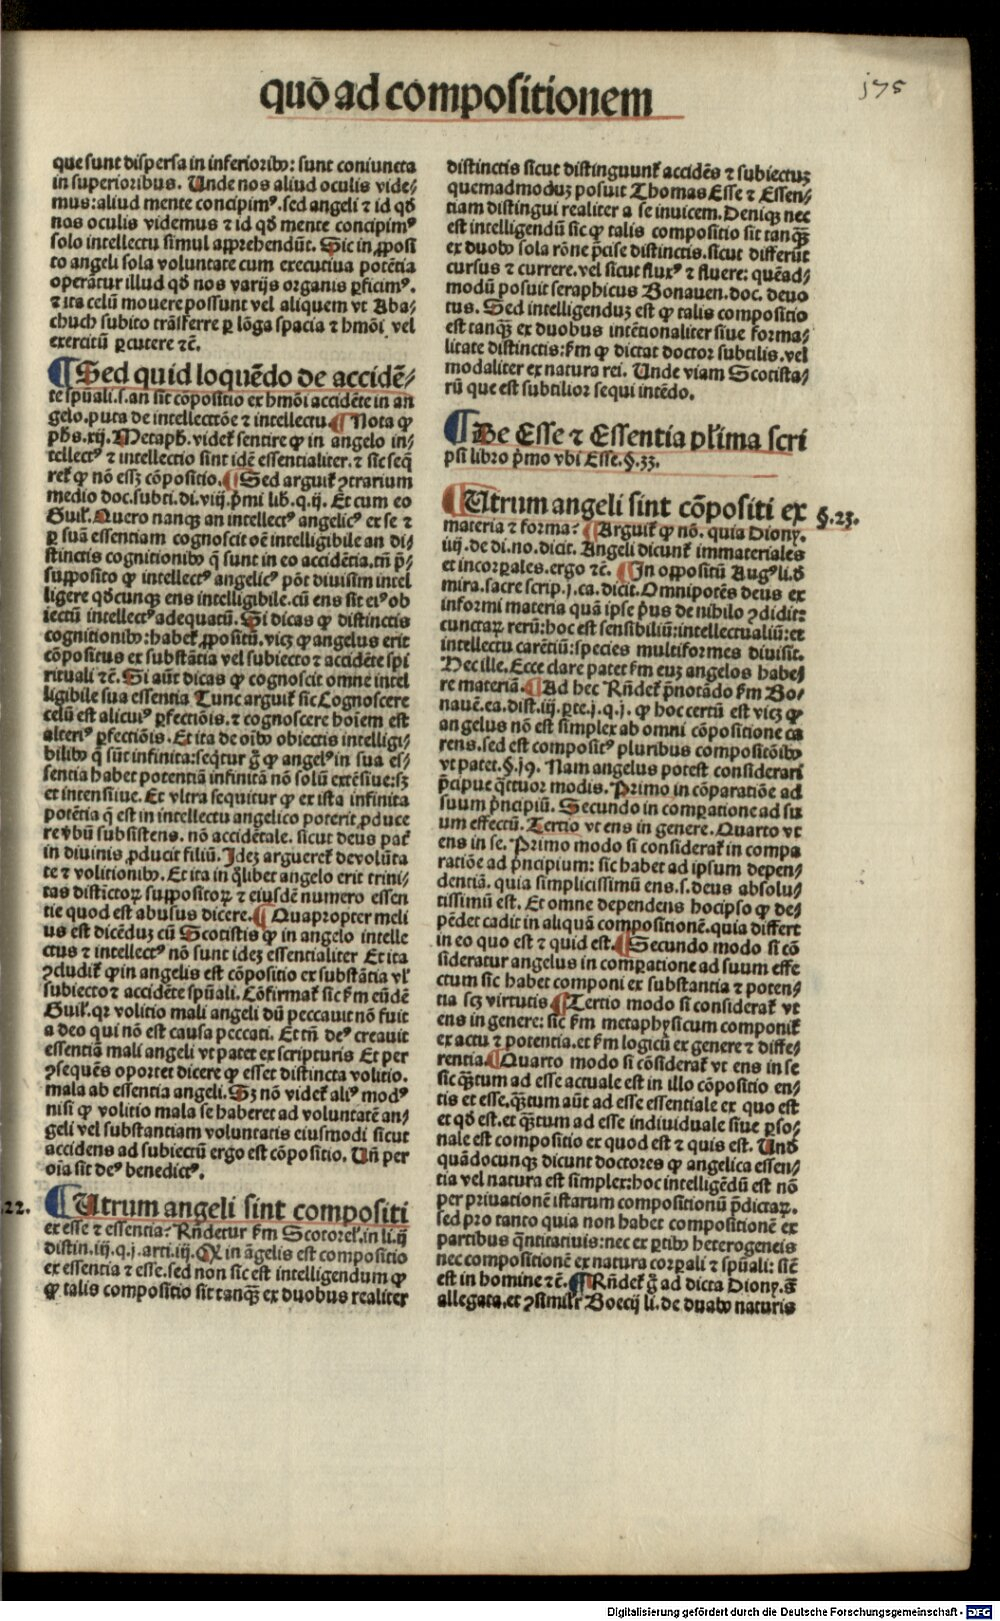 quō ad compositionem
175
que sunt dispersa in inferiorib⁹: sunt coniuncta
in superioribus. Unde nos aliud oculis vide-
mus: aliud mente concipim⁹. sed angeli ⁊ id qđ
nos oculis videmus ⁊ id qđ mente concipim⁹
solo intellectu simul apprehendūt. Sic in ꝓposi
to angeli sola voluntate cum executiua potētia
operātur illud qđ nos varijs organis ꝑficim⁹.
⁊ ita celū mouere possunt vel aliquem vt Aba-
chuch subito trāsferre ꝑ lōga spacia ⁊ hmōi vel
exercitū ꝑcutere ⁊č.
¶ Sed quid loquēdo de accidē-
te spūali. s. an sit cōpositio ex hmōi accidēte in an
gelo. puta de intellectōe ⁊ intellectu. ¶ Nota ꝙ
phs. xij. Metaph. videt̄ sentire ꝙ in angelo in-
tellect⁹ ⁊ intellectio sint idē essentialiter. ⁊ sic seq̄
ret̄ ꝙ nō essꝫ cōpositio. ¶ Sed arguit̄ ꝯtrarium
medio doc. subti. di. viij. p̄mi lib. q. ij. Et cum eo
Guil. Quero nanqꝫ an intellect⁹ angelic⁹ ex se ⁊
ꝑ suā essentiam cognoscit oē intelligibile an di-
stinctis cognitionib⁹ q̄ sunt in eo accidētia. tn̄ p̄-
supposito ꝙ intellect⁹ angelic⁹ pōt diuisim intel
ligere qđcunqꝫ ens intelligibile. cū ens sit ei⁹ ob
iectū intellect⁹ adequatū. Si dicas ꝙ distinctis
cognitionib⁹: habet̄ ꝓpositū. vicꝫ ꝙ angelus erit
cōpositus ex substātia vel subiecto ⁊ accidēte spi
rituali ⁊č. Si aūt dicas ꝙ cognoscit omne intel
ligibile sua essentia Tunc arguit̄ sic Cognoscere
celū est alicui⁹ ꝑfectiōis. ⁊ cognoscere hoīem est
alteri⁹ ꝑfectiōis. Et ita de oīb⁹ obiectis intelligi-
bilib⁹ q̄ sūt infinita: seq̄tur g̊ ꝙ angel⁹ in sua es-
sentia habet potentiā infinitā nō solū extēsiue: sꝫ
et intensiue. Et vltra sequitur ꝙ ex ista infinita
potētia q̄ est in intellectu angelico poterit ꝓduce
re v̄bū subsistens. nō accidētale. sicut deus pat̄
in diuinis ꝓducit filiū. Ideꝫ arguet̄ de volūta
te ⁊ volitionib⁹. Et ita in q̄libet angelo erit trini-
tas distīctoꝝ suppositoꝝ ⁊ eiusdē numero essen
tie quod est abusus dicere. ¶ Quapropter meli
us est dicēduꝫ cū Scotistis ꝙ in angelo intelle
ctus ⁊ intellect⁹ nō sunt ideꝫ essentialiter Et ita
ꝯcludit̄ ꝙ in angelis est cōpositio ex substātia vl'
subiecto ⁊ accidēte spūali. Cōfirmat̄ sic ẜm eūdē
Guil. qr volitio mali angeli dū peccauit nō fuit
a deo qui nō est causa peccati. Et tn̄ de⁹ creauit
essentiā mali angeli vt patet ex scripturis Et per
ꝯsequēs oportet dicere ꝙ esset distincta volitio.
mala ab essentia angeli. Sꝫ nō videt̄ ali⁹ mod⁹
nisi ꝙ volitio mala se haberet ad voluntatē an-
geli vel substantiam voluntatis eiusmodi sicut
accidens ad subiectū ergo est cōpositio. Un̄ per
oīa sit de⁹ benedict⁹.
22.
¶ Utrum angeli sint compositi
ex esse ⁊ essentia? Rn̄detur ẜm Scotorel. in li. ij
distin. iij. q. j. arti. iij. Q in āgelis est compositio
ex essentia ⁊ esse. sed non sic est intelligendum ꝙ
ꝙ talis compositio sit tanqꝫ ex duobus realiter
distinctis sicut distinguunt̄ accidēs ⁊ subiectuꝫ
quemadmoduꝫ posuit Thomas Esse ⁊ Essen-
tiam distingui realiter a se inuicem. Deniqꝫ nec
est intelligendū sic ꝙ talis compositio sit tanqꝫ
ex duob⁹ sola rōne p̄cise distinctis. sicut differūt
cursus ⁊ currere. vel sicut flux⁹ ⁊ fluere: quēad-
modū posuit seraphicus Bonauen. doc. deuo
tus. Sed intelligenduꝫ est ꝙ talis compositio
est tanqꝫ ex duobus intētionaliter siue forma-
litate distinctis: ẜm ꝙ dictat doctor subtilis. vel
modaliter ex natura rei. Unde viam Scotista-
rū que est subtilior sequi intēdo.
¶ De Esse ⁊ Essentia pl'ima scri
psi libro p̄mo vbi Esse. §. 33.
¶ Utrum angeli sint cōpositi ex
§. 23.
materia ⁊ forma? ¶ Arguit̄ ꝙ nō. quia Diony.
iiij. de di. no. dicit. Angeli dicunt̄ immateriales
et incorꝑales. ergo ⁊č. ¶ In oppositū Aug⁹ li. đ
mira. sacre scrip. j. ca. dicit. Omnipotēs deus ex
informi materia quā ipse p̄us de nihilo ꝯdidit:
cunctaꝝ rerū: hoc est sensibiliū: intellectualiū: et
intellectu carētiū: species multiformes diuisit.
Hec ille. Ecce clare patet ẜm euꝫ angelos habe-
re materiā. ¶ Ad hec Rn̄det̄ p̄notādo ẜm Bo-
nauē. ea. dist. iij. ꝑte. j. q. j. ꝙ hoc certū est vicꝫ ꝙ
angelus nō est simplex ab omni cōpositione ca
rens. sed est composit⁹ pluribus compositōib⁹
vt patet. §. 19. Nam angelus potest considerari
p̄cipue q̄ttuor modis. Primo in cōparatiōe ad
suum p̄ncipiū. Secundo in comꝑatione ad su
um effectū. Tertio vt ens in genere. Quarto vt
ens in se. Primo modo si considerat̄ in compa
ratiōe ad p̄ncipium: sic habet ad ipsum depen-
dentiā. quia simplicissimū ens. s. deus absolu-
tissimū est. Et omne dependens hocipso ꝙ de-
pēdet cadit in aliquā compositionē. quia differt
in eo quo est ⁊ quid est. ¶ Secundo modo si cō
sideratur angelus in comꝑatione ad suum effe
ctum sic habet componi ex substantia ⁊ poten-
tia scꝫ virtutis ¶ Tertio modo si considerat̄ vt
ens in genere: sic ẜm metaphysicum componit̄
ex actu ⁊ potentia. et ẜm logicū ex genere ⁊ diffe-
rentia. ¶ Quarto modo si cōsiderat̄ vt ens in se
sic qꝫtum ad esse actuale est in illo cōpositio en-
tis et esse. qꝫtum aūt ad esse essentiale ex quo est
et qđ est. et qꝫtum ad esse indiuiduale siue ꝑso-
nale est compositio ex quod est ⁊ quis est. Unđ
quādocunqꝫ dicunt doctores ꝙ angelica essen-
tia vel natura est simplex: hoc intelligēdū est nō
per priuationē istarum compositionū p̄dictaꝝ.
sed pro tanto quia non habet compositionē ex
partibus q̄ntitatiuis: nec ex ꝑtib⁹ heterogeneis
nec compositionē ex natura corꝑali ⁊ spūali: sic̄
est in homine ⁊č. ¶ Rn̄det̄ g̊ ad dicta Diony. s̄
allegata. et ꝯsimil'r Boecij li. de duab⁹ naturis
Digitalisierung gefördert durch die Deutsche Forschungsgemeinschaft - DFG